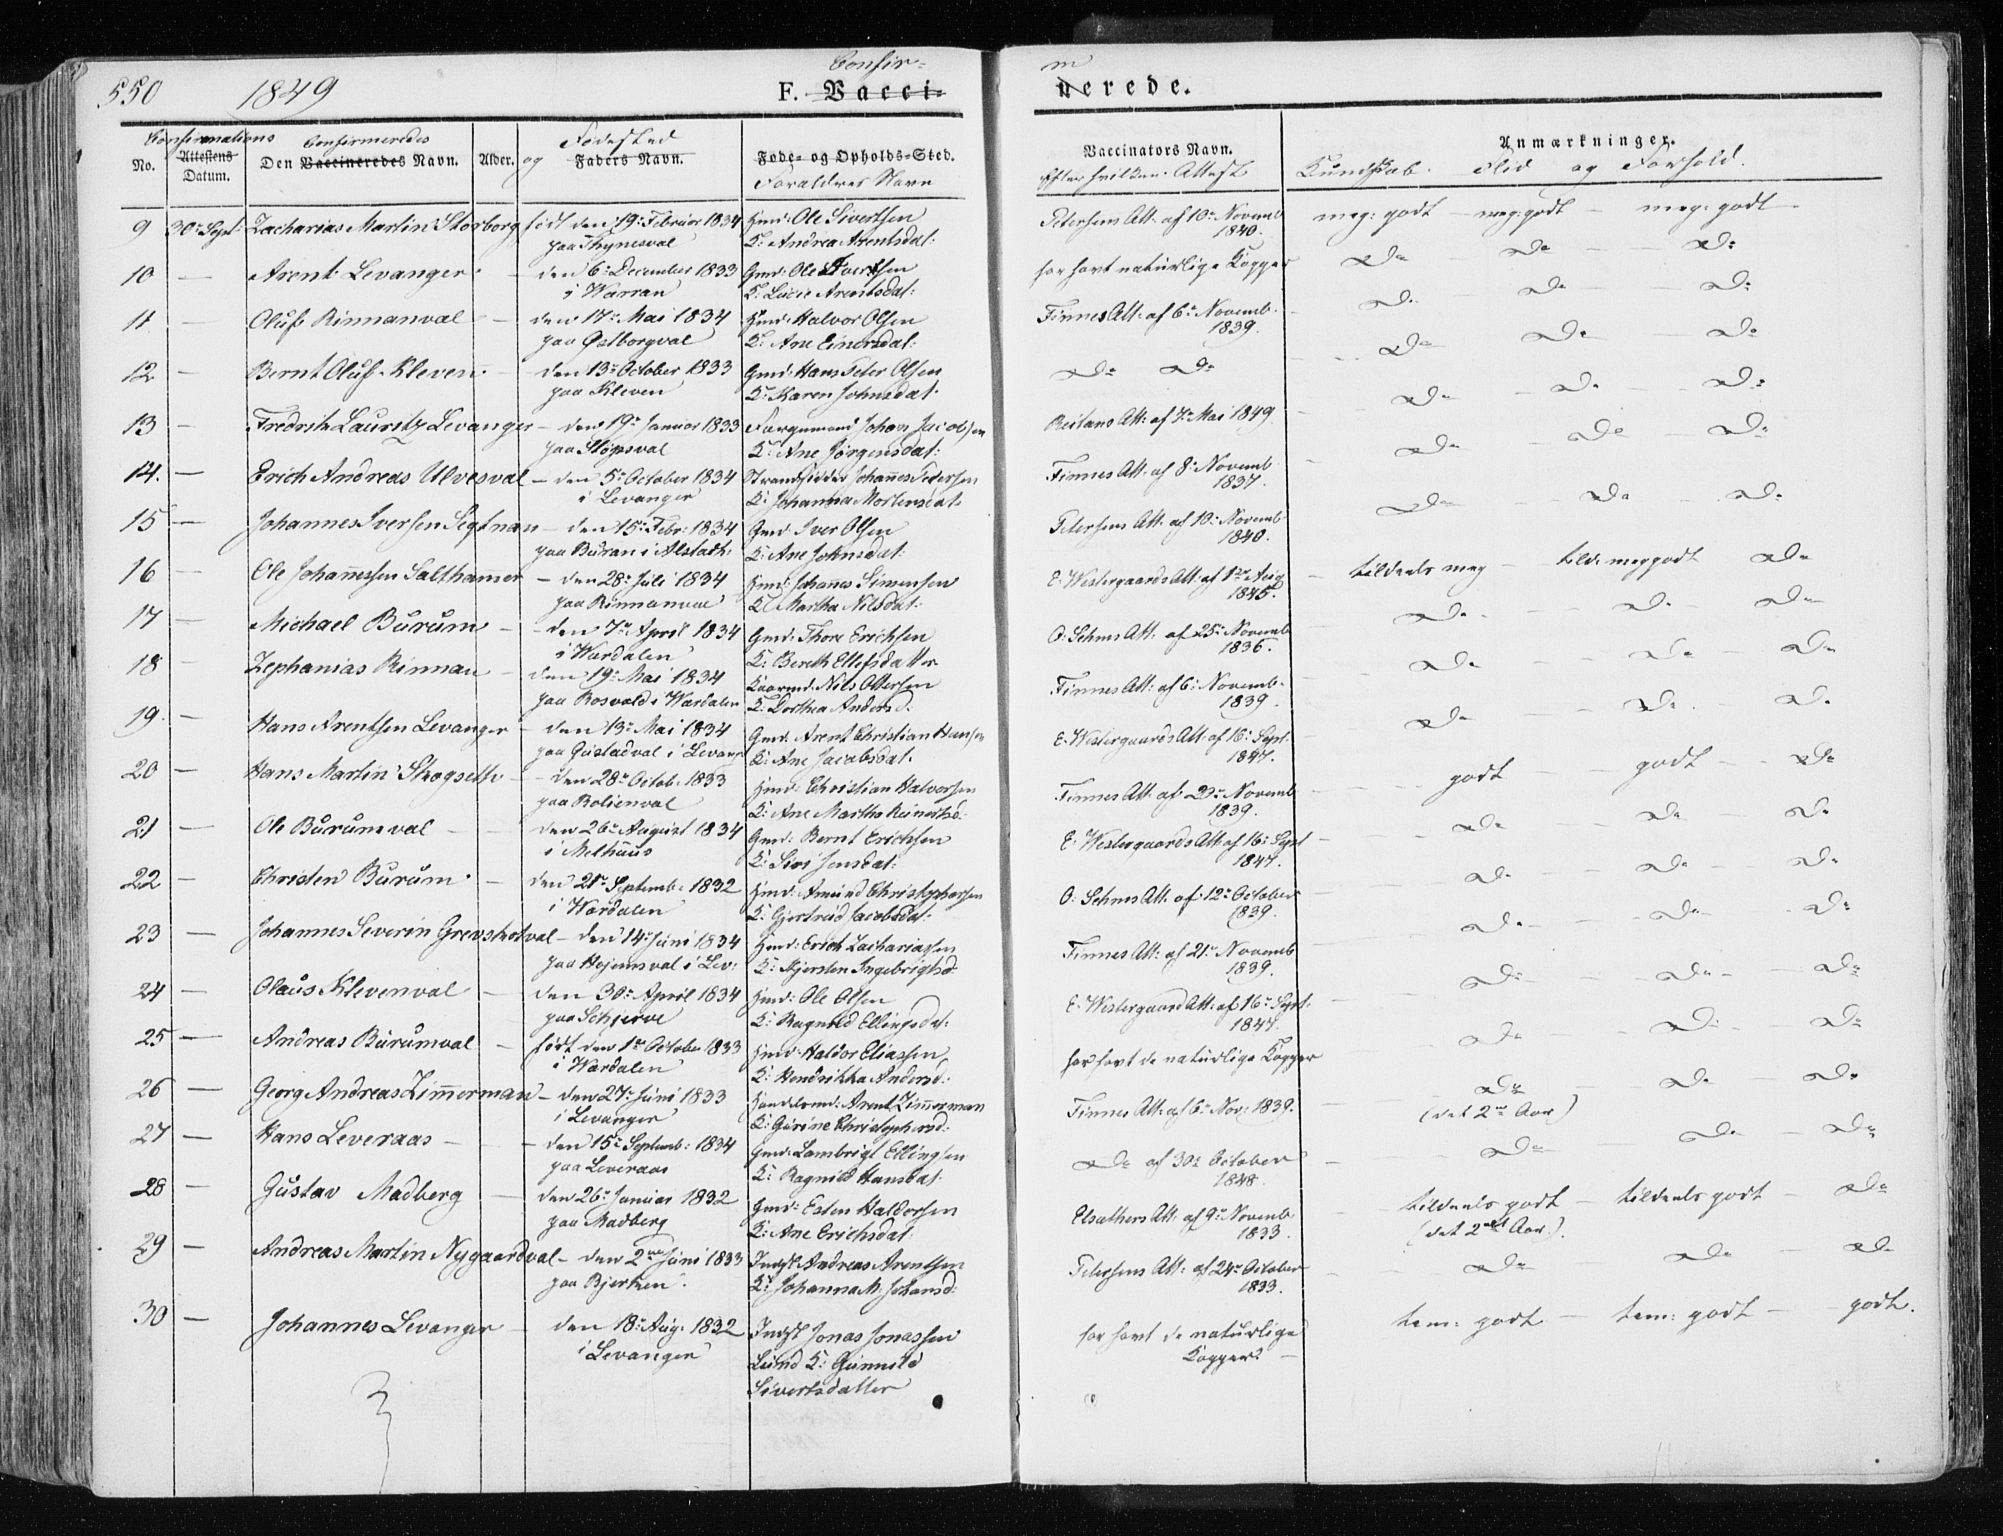 550 1849 Confir= F. Vacci=
m nerede.
Confirmations Confirmeredes Fødested
No. Attestens Datum. Den Vaccineredes Navn. Alder. og Faders Navn. Føde- og Opholds-Sted. Forældres Navn
Vaccinators Navn. Efter hvilken Attest Anmærkninger. Kundskab. Flid og Forhold.
9 30te Sept: Zacharias Martin Storborg født den 19de Februar 1834 Hmd: Ole Sivertsen Petersens Att. af 10de Novemb meg: godt – meg: godt – meg: godt
paa Thynesval K: Andrea Arentsdat: 1840.
10 — Arent Levanger – den 6te December 1833 Gmd: Ole Sivertsen har havt naturlige Kopper Do Do Do
i Værran K: Lucie Arentsdat:
11 — Oluf Rinnanval – den 17de Mai 1834 Hmd: Halvor Olsen Finnes Att. af 6te Novemb. Do Do Do
paa Østborgval K: Ane Einersdat: 1839.
12 — Bernt Oluf Kleven – den 13de October 1833 Gmd: Hans Peter Olsen Do Do Do Do Do
paa Kleven K: Karen Johnsdat.
13 — Fredrik Lauritz Levanger – den 19de Januar 1833 Færgemand Johan Jacobsen Reitans Att: af 7de Mai 1849. Do Do Do
paa Stöpsval K: Ane Jörgensdat:
14. — Erich Andreas Ulvesval – den 5te October 1834 Strandsidder Johannes Pedersen Finnes Att. af 8de Novemb Do Do Do
i Levanger K: Johanna Mortensdat. 1837.
15 — Johannes Iversen Segtnan – den 15de Febr: 1834 Gmd Iver Olsen Petersens Att. af 10de Novemb Do Do Do
paa Buran i Alstadh: K: Ane Johnsdat: 1840.
16 — Ole Johannessen Salthamer – den 28de Juli 1834 Hmd: Johannes Simensen E. Westergaards Att: af 1ste Aug tildeels meg – tild: meg godt Do
paa Rinnanval K: Martha Nilsdat: 1845.
17 — Michael Burum – den 7de April 1834 Gmd: Thore Erichsen O. Sehms Att. af 25de Novemb Do Do Do
i Værdalen K: Bereth Ellefsdatter 1836.
18 — Zephanias Rinnan – den 19de Mai 1834 Nils Ottersen Finnes Att: af 6te Novemb. Do Do Do
paa Rosvold i Værdalen K: Dorthea Andersd: 1839.
19. — Hans Arentsen Levanger – den 13de Mai 1834 Gmd. Arent Christian Hansen E. Westergaards Att: af 16de Sept. Do Do Do
paa Gustadval i Levang K: Ane Jacobsdat. 1847.
20 — Hans Martin Skogseth – den 28de Octob. 1833 Hmd: Christian Halvorsen Finnes Att. af 23de Novemb godt godt Do
paa Bolienval K: Ane Martha 1839.
21 — Ole Burumval – den 26de August 1834 Gmd: Bernt Erichsen E. Westergaards Att. af 16de Sept Do Do Do
i Melhuus K: Siri Jonsdat: 1847.
22 — Christen Burum – den 21de Septemb: 1832 Hmd: Amund Christophersen O: Sehms Att. af 12te October Do Do Do
i Værdalen K: Gjertrud Jacobsdat: 1839.
23 — Johannes Severin Grevskotval – den 14de Juni 1834 Hmd: Erich Zachariassen Finnes Att: af 21de Novemb Do Do Do
paa Hojemsval i Lev: K: Kjersten Ingebrigtsd: 1839.
24 — Olaus Klevenval – den 30te April 1834 Hmd: Ole Olsen E. Westergaard Att: af 16de Sept. Do Do Do
paa Schjerve K: Ragnild Ellingsdat: 1847.
25 — Andreas Burumval – født den 1ste October 1833 Hmd: Haldor Eliassen har havt de naturlige Kopper Do Do Do
i Værdalen K: Hendrikka Andersd:
26 — Georg Andreas Zimmerman – den 27de Juni 1833 Handelsmd: Arent Zimmerman Finnes Att. af 6te Nov: 1839. Do Do Do
i Levanger K: Gurine Christophersd: (det 2de Aar)
27 — Hans Leveraas – den 15de Septemb: 1834 Gmd. Lambrigt Ellingsen Do af 30te October Do Do Do
paa Leveraas K: Ragnild Hansdat. 1848.
28 — Gustav Madberg – den 26de Januar 1832 Gmd: Esten Haldorsen Elsathers Att. af 9de Novemb tildeels godt – tildeels godt – Do
paa Madberg K: Ane Erichsdat: 1833. (det 2det Aar).
29 — Andreas Martin Nygaardval – den 2den Juni 1833 Indst Andreas Arentsen Petersens Att: af 24de October Do Do Do
paa Bjerken. K: Johanna M. Johansd: 1833.
30 — Johannes Levanger – den 18de Aug. 1832 Indst Jonas Jonassen har havt de naturlige tem: godt – tem: godt – godt.
i Levanger Lund K: Gunnild Kopper. –
Sivertsdatter